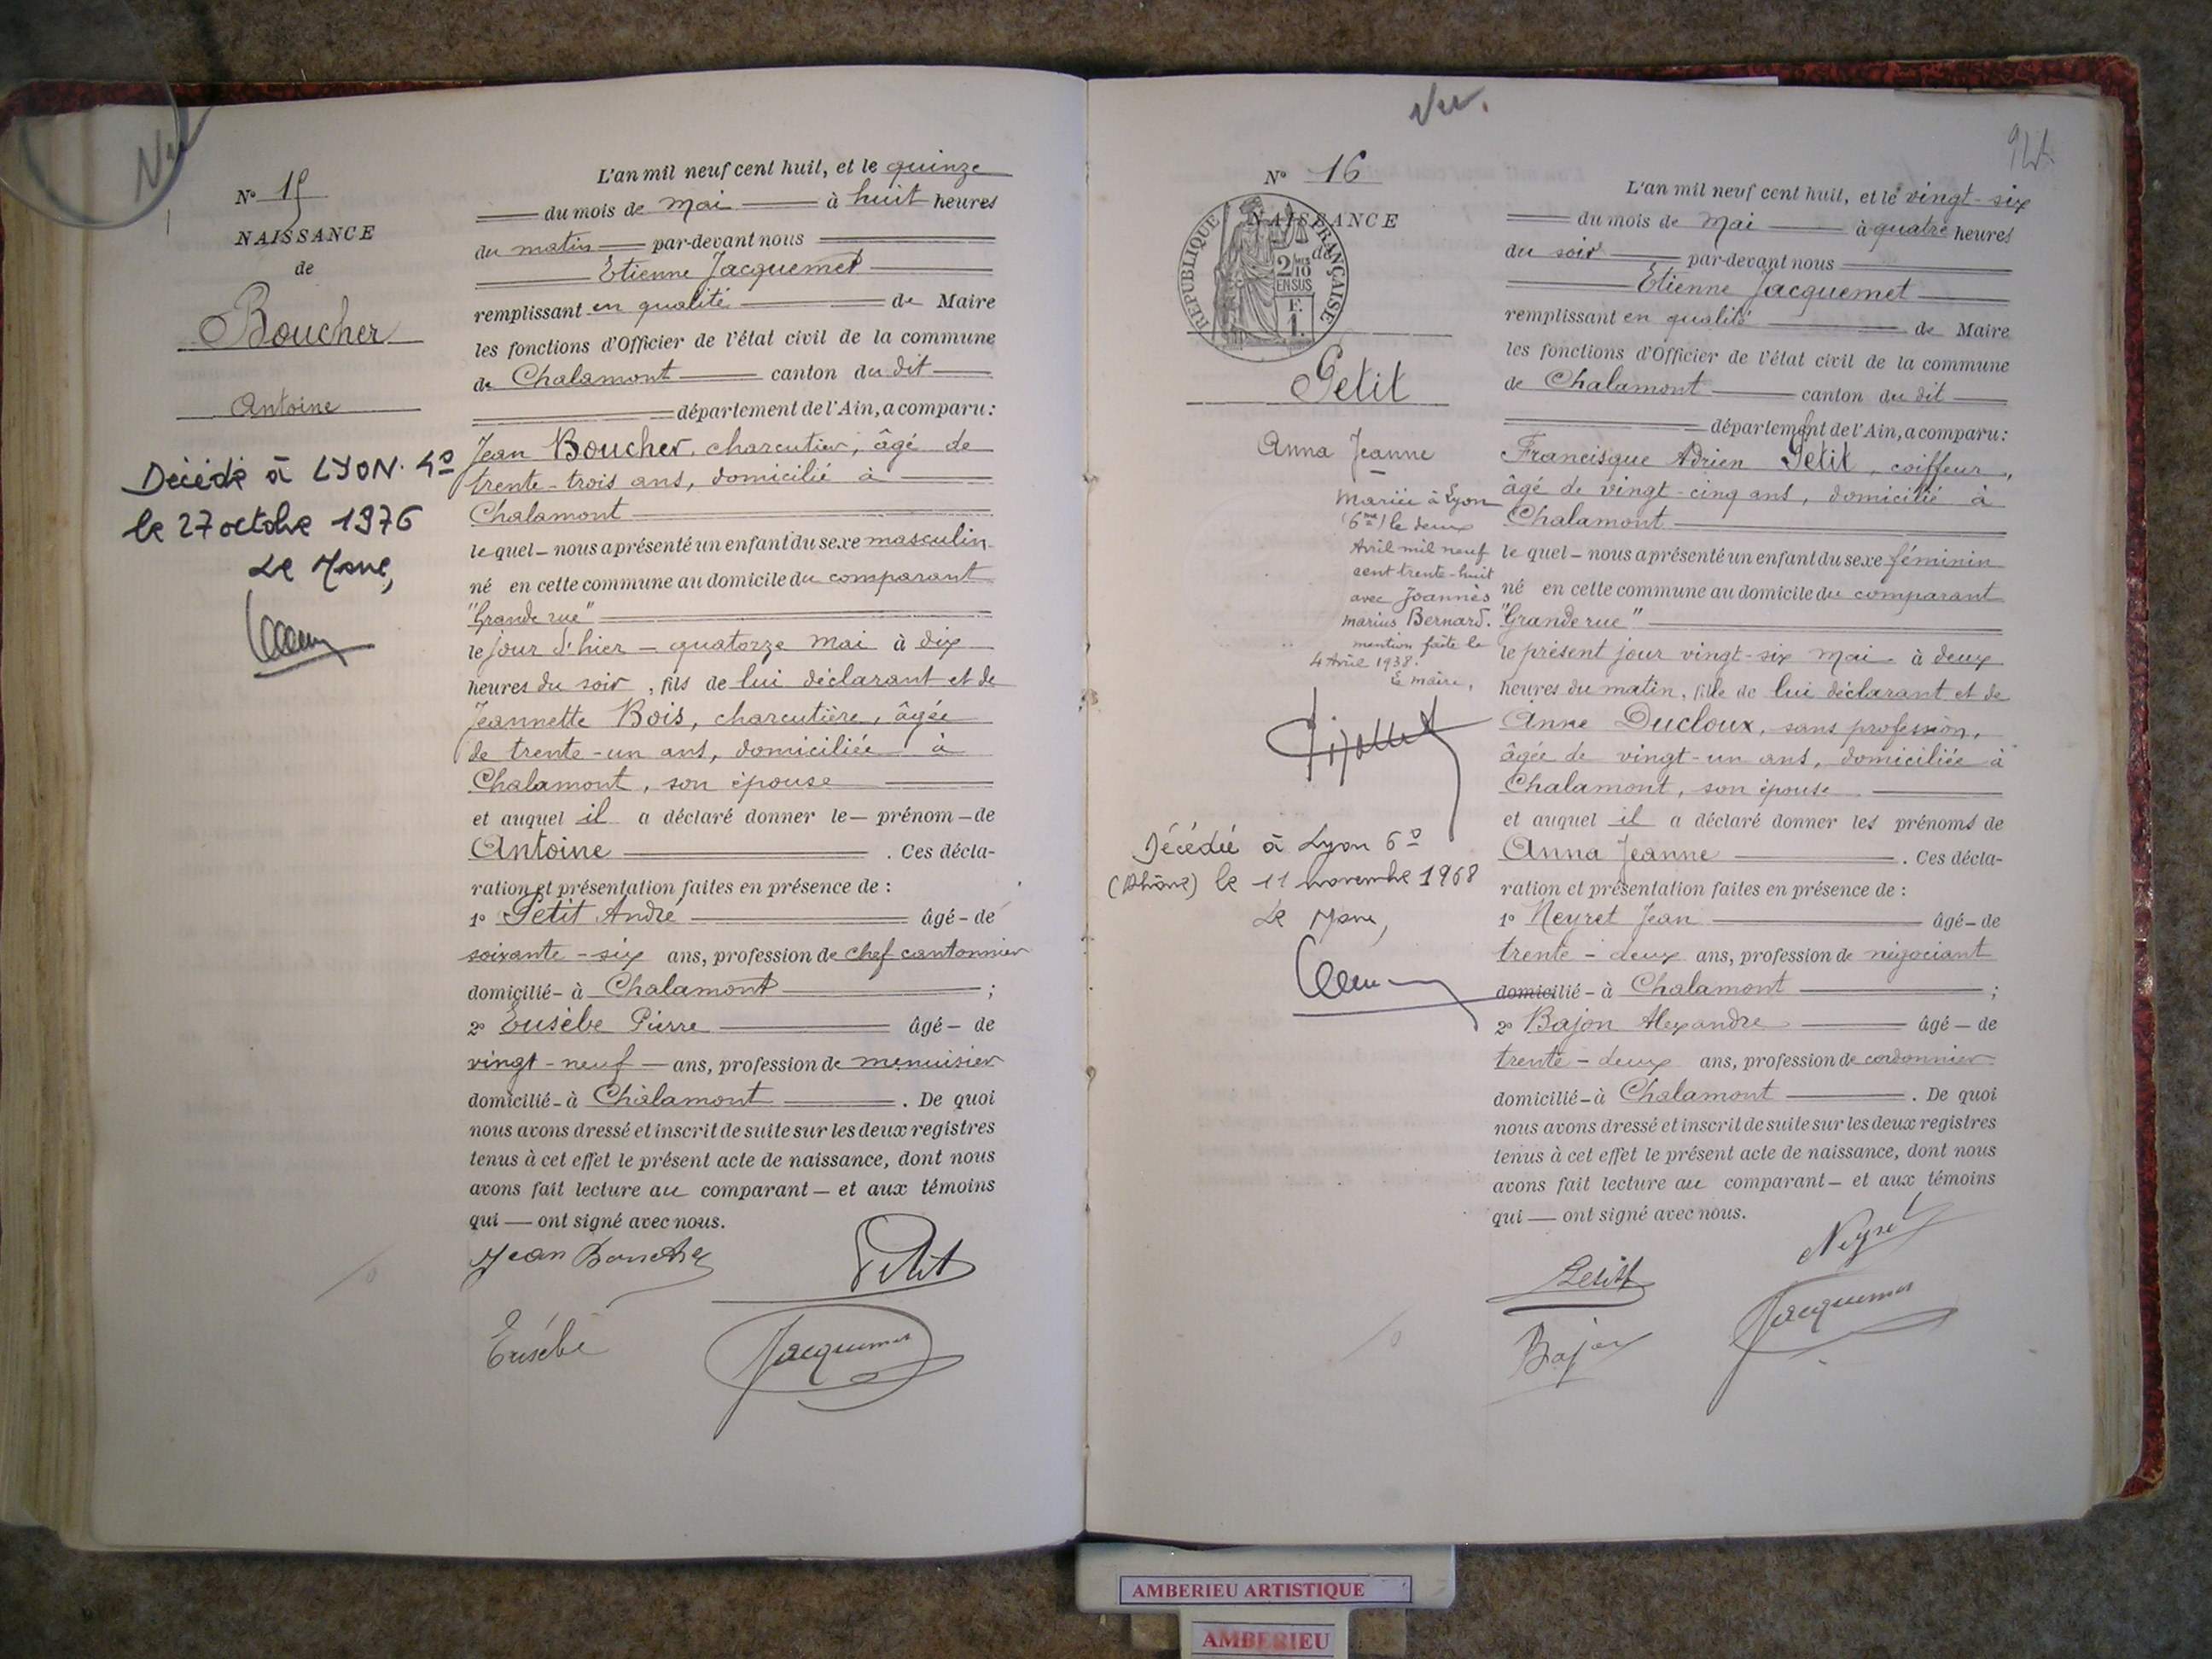 Vu
N° 15
NAISSANCE
de
Boucher
Antoine
Décédé à LYON. 4°
le 27 octobre 1976
Le Maire,
L'an mil neuf cent huit, et le quinze
du mois de Mai à huit heures
du matin par-devant nous
Etienne Jacquemet
remplissant en qualité de Maire
les fonctions d'Officier de l'état civil de la commune
de Chalamont canton du dit
département de l'Ain, a comparu:
Jean Boucher, charcutier, âgé de
trente-trois ans, domicilié à
Chalamont
lequel nous a présenté un enfant du sexe masculin
né en cette commune au domicile du comparant
"Grande rue"
le jour d'hier - quatorze Mai à dix
heures du soir, fils de lui déclarant et de
Jeannette Bois, charcutière, âgée
de trente-un ans, domiciliée à
Chalamont, son épouse
et auquel il a déclaré donner le prénom de
Antoine . Ces décla-
ration et présentation faites en présence de :
1° Petit André âgé de
soixante-six ans, profession de chef cantonnier
domicilié à Chalamont ;
2° Eusèbe Pierre âgé de
vingt-neuf ans, profession de menuisier
domicilié à Chalamont . De quoi
nous avons dressé et inscrit de suite sur les deux registres
tenus à cet effet le présent acte de naissance, dont nous
avons fait lecture au comparant et aux témoins
qui ont signé avec nous.
Jean Boucher
Petit
Eusèbe
Jacquemet
Vu.
N° 16
NAISSANCE
de
RÉPUBLIQUE FRANÇAISE
2/10
EN SUS
F.
1.
Petit
Anna Jeanne
Mariée à Lyon
(6me) le deux
Avril mil neuf
cent trente-huit
avec Joannès
Marius Bernard.
mention faite le
4 Avril 1938.
Le maire,
Décédée à Lyon 6°
(Rhône) le 11 novembre 1968
Le Maire,
L'an mil neuf cent huit, et le vingt-six
du mois de Mai à quatre heures
du soir par-devant nous
Etienne Jacquemet
remplissant en qualité de Maire
les fonctions d'Officier de l'état civil de la commune
de Chalamont canton du dit
département de l'Ain, a comparu:
Francisque Adrien Petit, coiffeur,
âgé de vingt-cinq ans, domicilié à
Chalamont
lequel nous a présenté un enfant du sexe féminin
né en cette commune au domicile du comparant
"Grande rue"
le présent jour vingt-six Mai à deux
heures du matin, fille de lui déclarant et de
Anne Ducloux, sans profession,
âgée de vingt-un ans, domiciliée à
Chalamont, son épouse
et auquel il a déclaré donner les prénoms de
Anna Jeanne . Ces décla-
ration et présentation faites en présence de :
1° Neyret Jean âgé de
trente-deux ans, profession de négociant
domicilié à Chalamont ;
2° Bajon Alexandre âgé de
trente-deux ans, profession de cordonnier
domicilié à Chalamont . De quoi
nous avons dressé et inscrit de suite sur les deux registres
tenus à cet effet le présent acte de naissance, dont nous
avons fait lecture au comparant et aux témoins
qui ont signé avec nous.
Neyret
Petit
Jacquemet
Bajon
AMBERIEU ARTISTIQUE
AMBERIEU